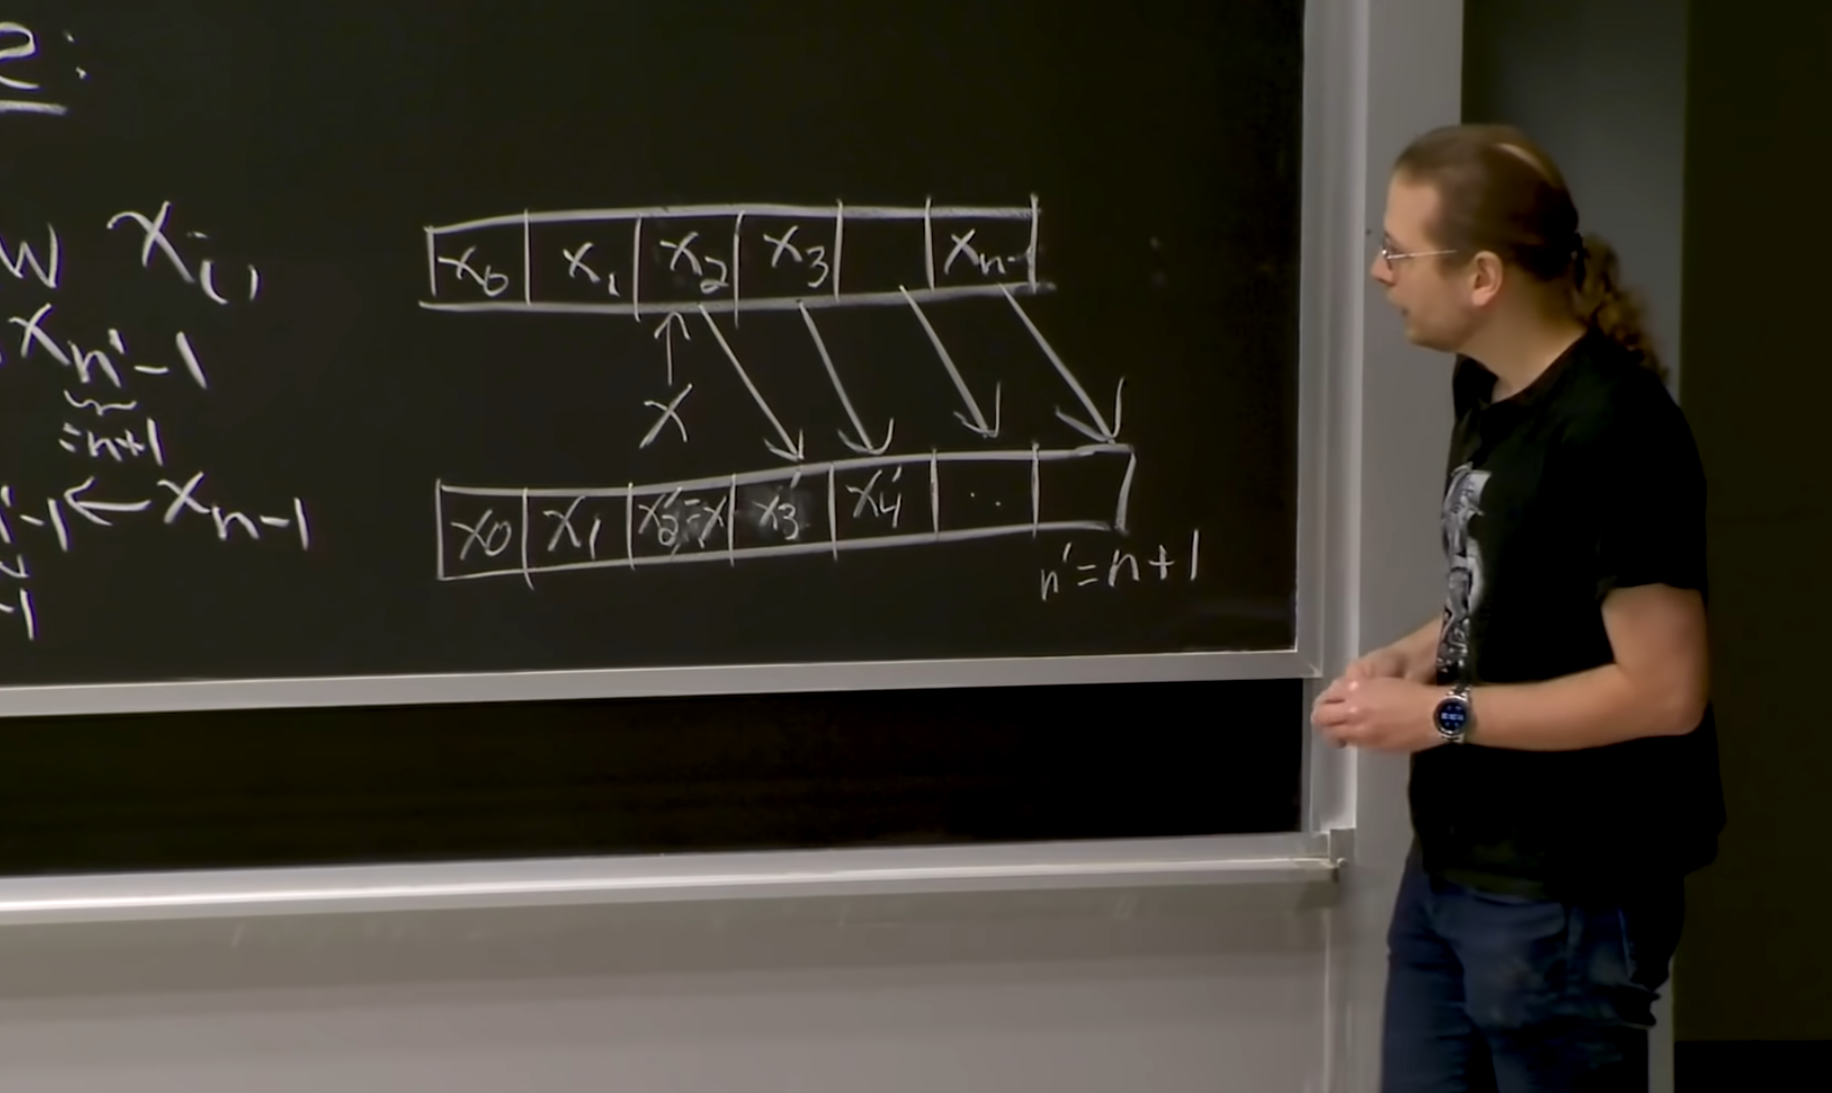 e:
w xᵢ,
xₙ'₋₁
=n+1
'-1 ← xₙ₋₁
-1
x₀ x₁ x₂ x₃ xₙ₋
x
x₀ x₁ x₂'=x x₃' x₄' ..
n'=n+1